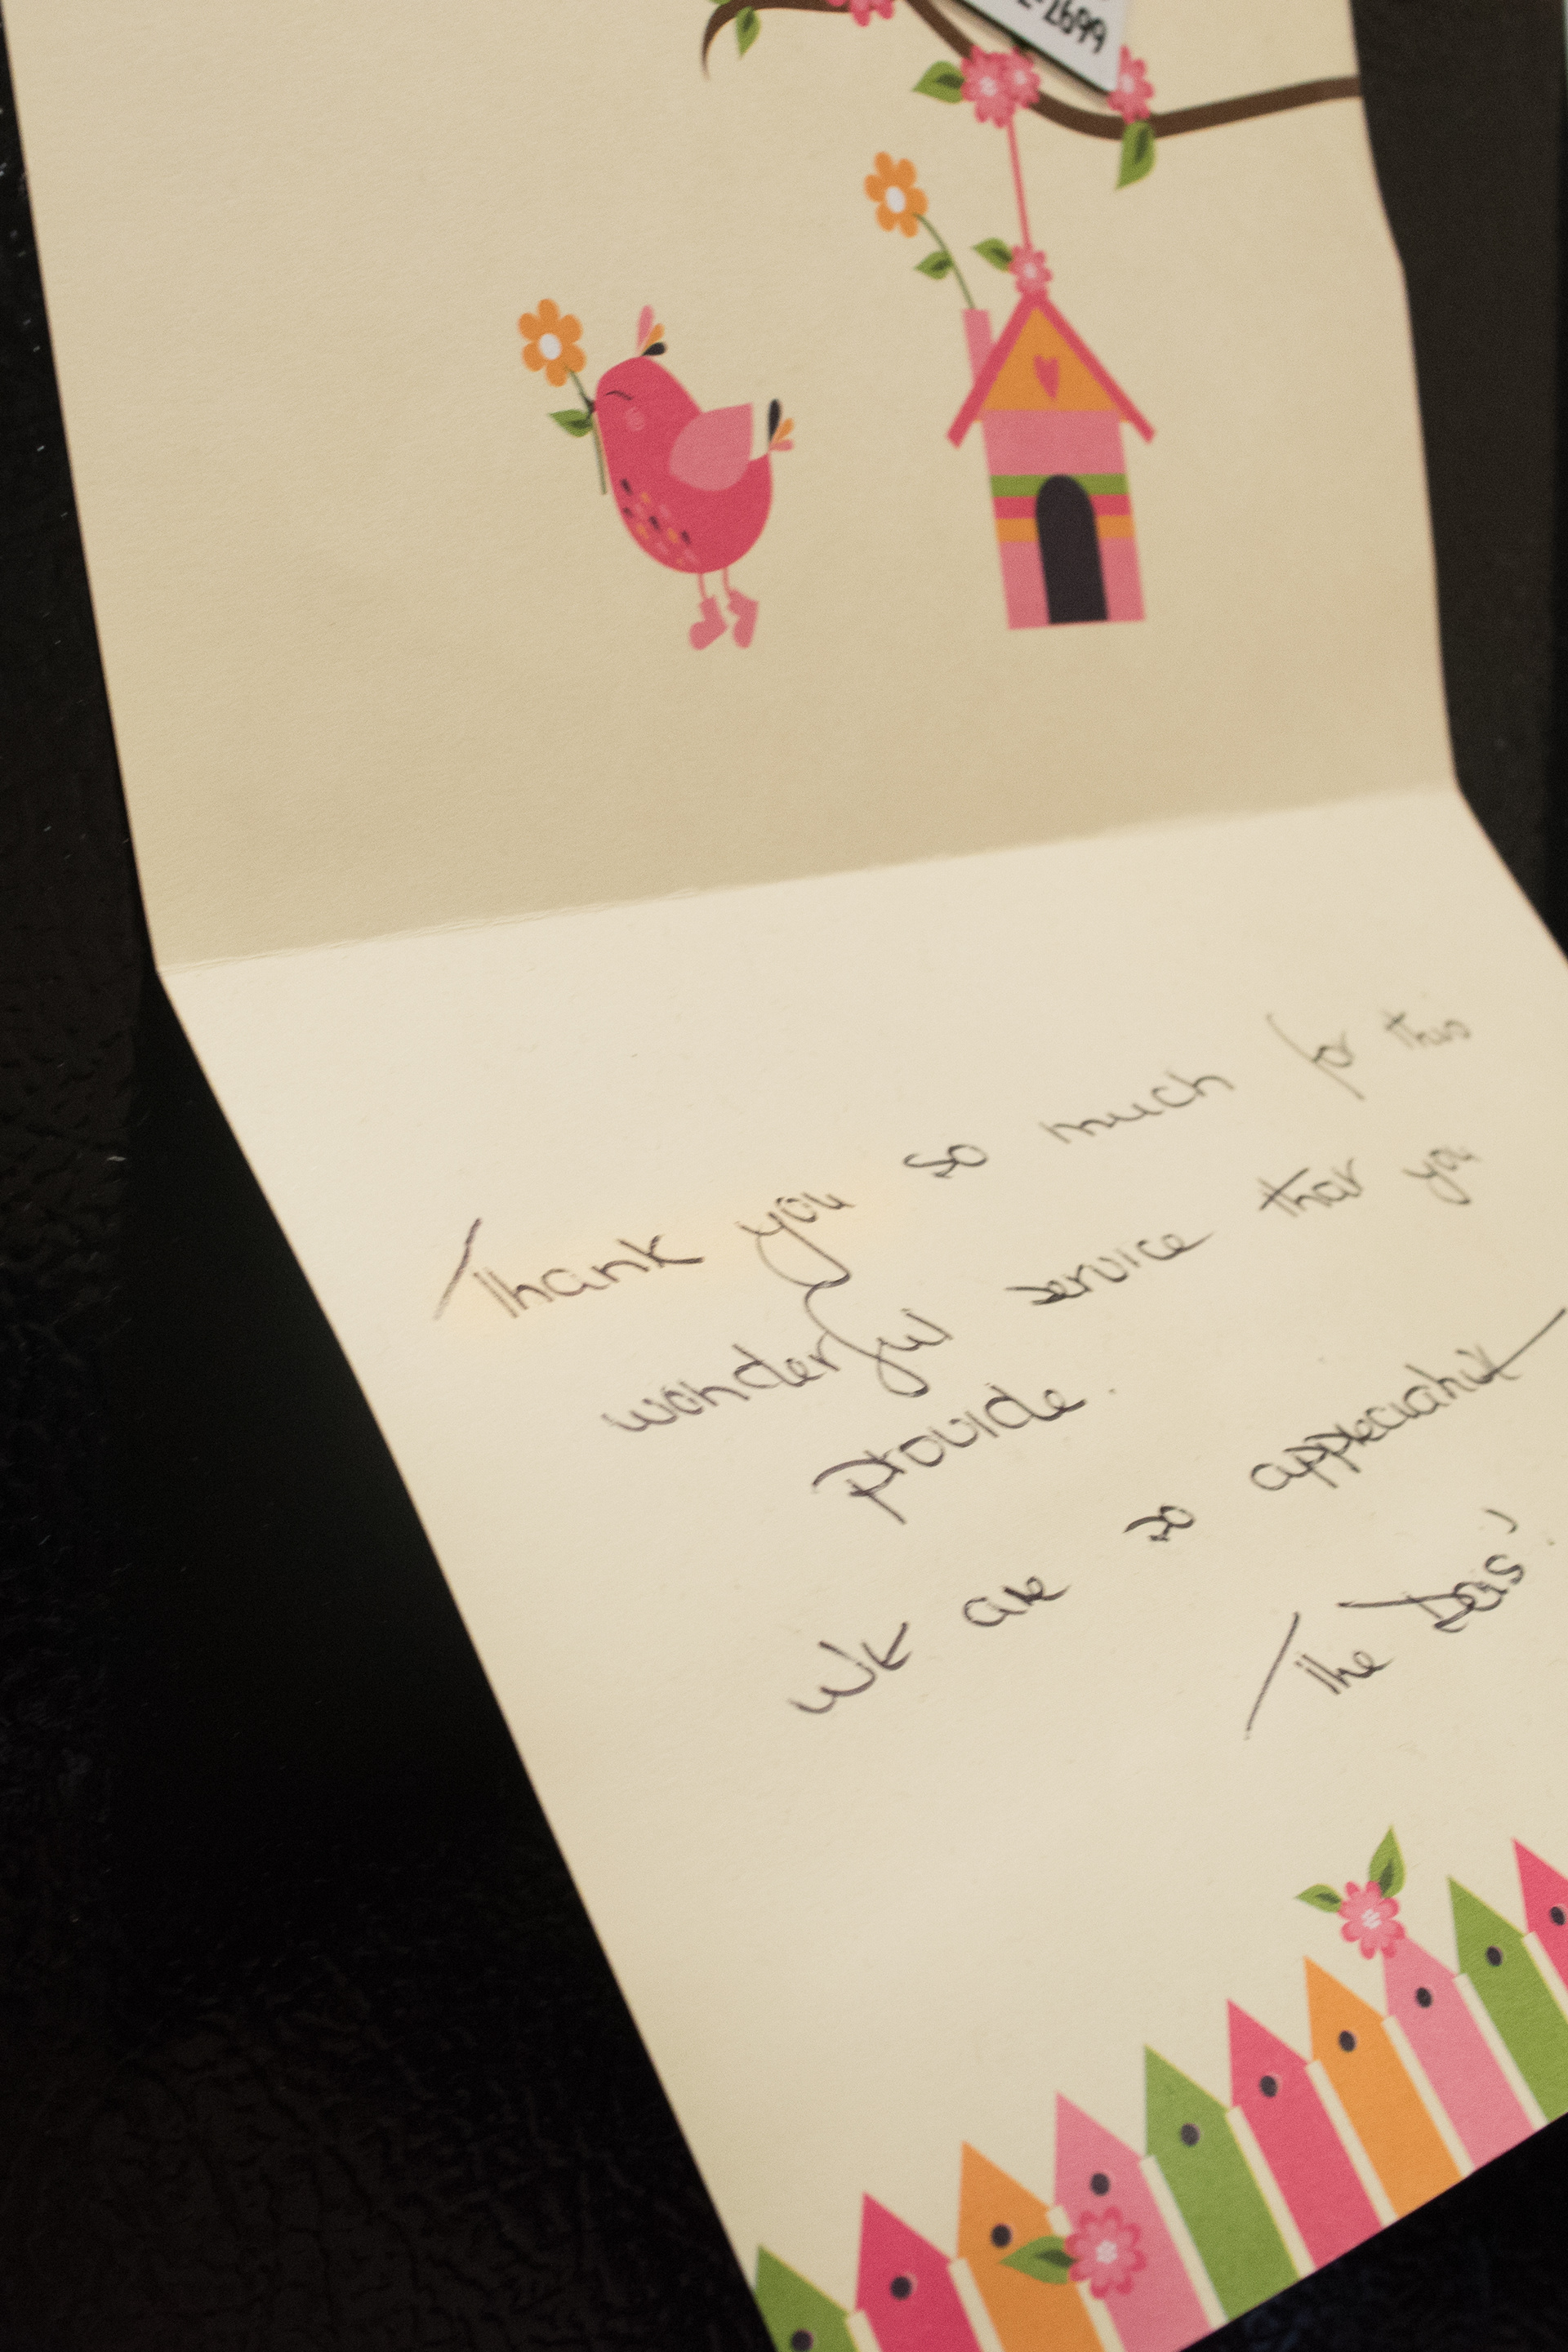 2699
Thank you so much for this
wonderful service that you
provide.
We are so appreciative
The